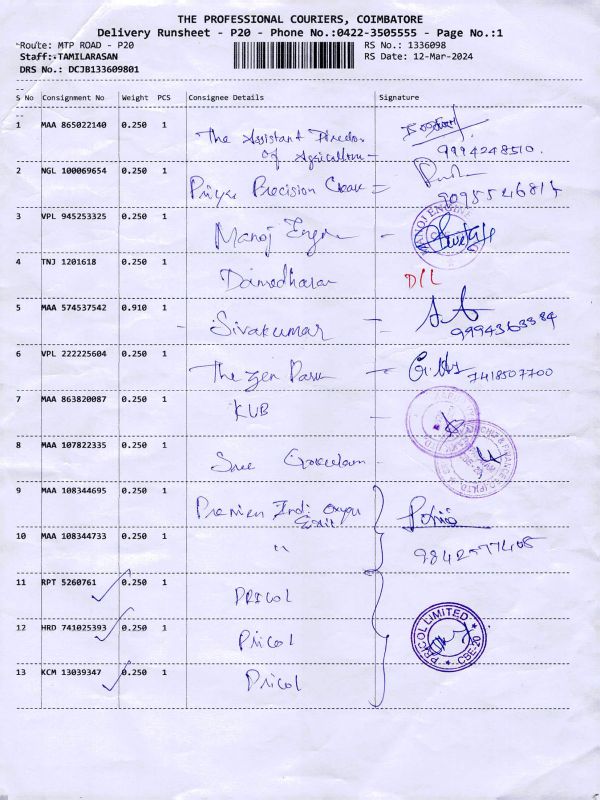 THE PROFESSIONAL COURIERS, COIMBATORE
Delivery Runsheet - P20 - Phone No.:0422-3505555 - Page No.:1
Route: MTP ROAD - P20 RS No.: 1336098
Staff: TAMILARASAN RS Date: 12-Mar-2024
DRS No.: DCJB133609801
S No Consignment No Weight PCS Consignee Details Signature
1 MAA 865022140 0.250 1 The Assistant Director
of Agriculture - 9994248510.
2 NGL 100069654 0.250 1 Priya Precision =
3 VPL 945253325 0.250 1 Manoj Engn -
4 TNJ 1201618 0.250 1 Damodharan D/L
5 MAA 574537542 0.910 1 - Sivakumar =
9994363384
6 VPL 222225604 0.250 1 The Zen - 7418507700
7 MAA 863820087 0.250 1 KVB -
8 MAA 107822335 0.250 1 Sree Gokulam -
9 MAA 108344695 0.250 1 Premier Indl
10 MAA 108344733 0.250 1 "
11 RPT 5260761 0.250 1 PRICOL
12 HRD 741025393 0.250 1 Pricol
PRICOL LIMITED
CBE-20
13 KCM 13039347 0.250 1 Pricol